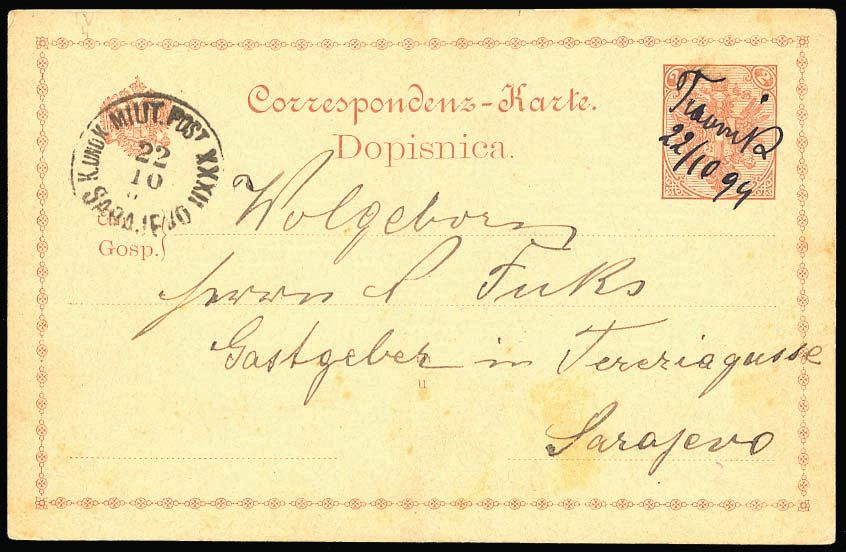 Correspondenz-Karte.
Dopisnica.
2
2
Travnik
22/10 94
K. UND K. MILIT. POST XXXII
22
10
SARAJEVO
Gosp.
Wolgeborn
Herrn A Fuks
Gastgeber in Tereziagasse
u
Sarajevo